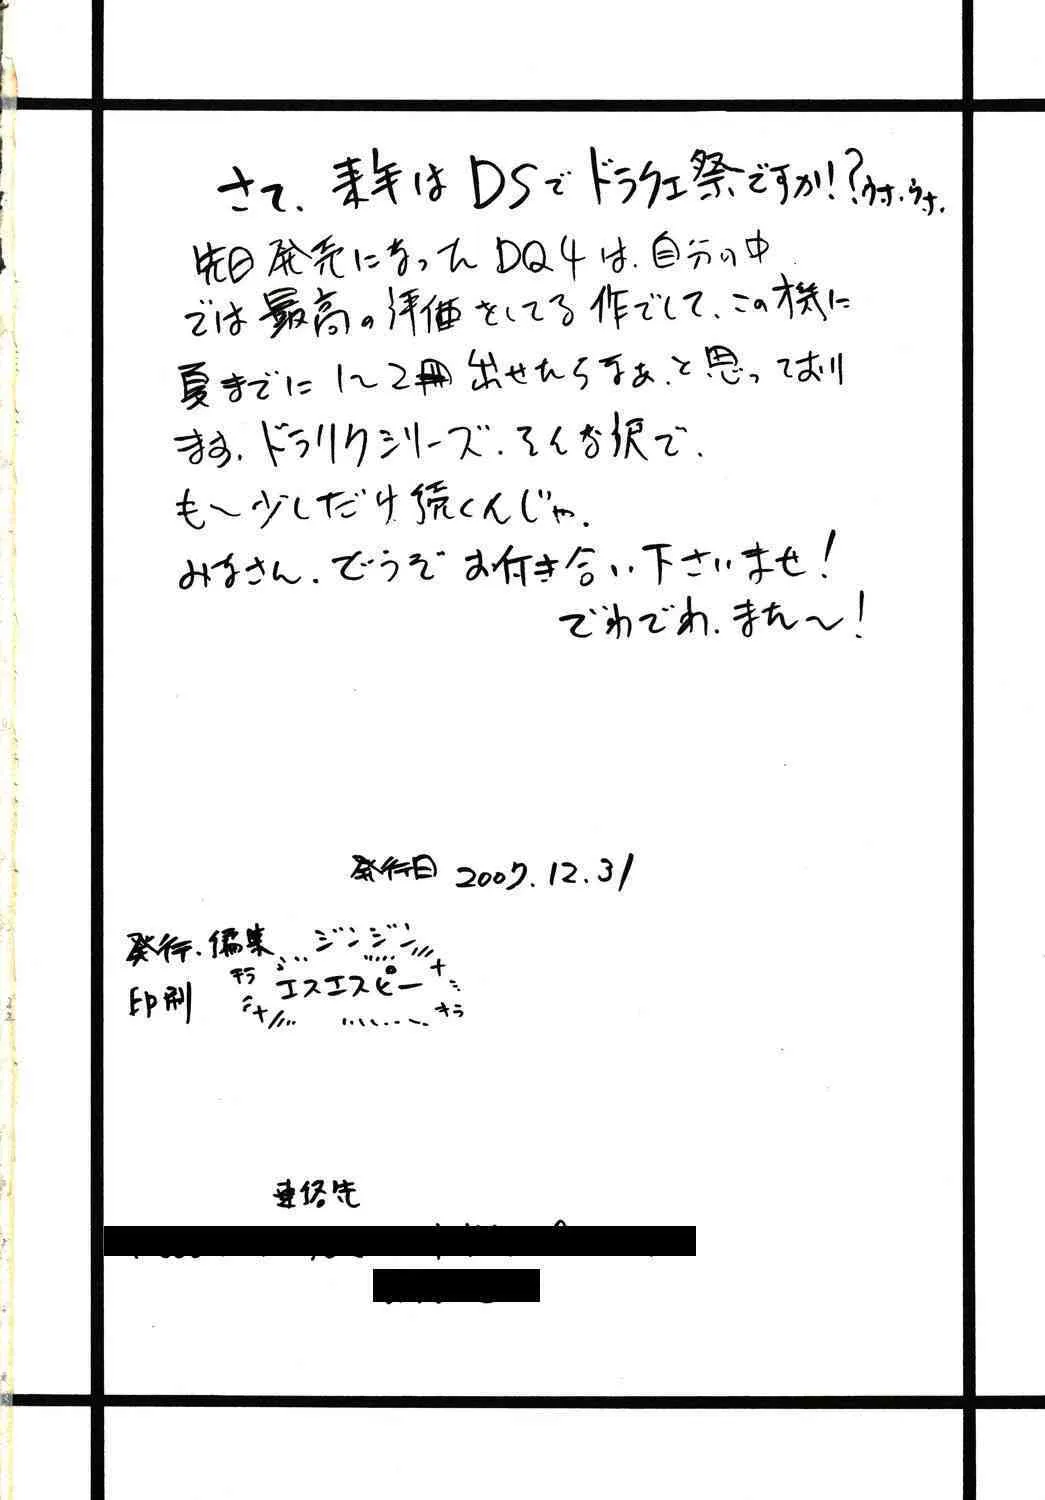 さて、来年はDSでドラクエ祭ですか!?ウサ、ウサ、
先日発売になったDQ4は、自分の中
では最高の評価をしてる作でして、この機に
夏までに1〜2冊出せたらなぁ、と思っており
ます。ドラリクシリーズ、そんな訳で、
も〜少しだけ続くんじゃ。
みなさん、どうぞお付き合い下さいませ!
でわでわ、また〜!
発行日 2007.12.31
発行、編集 ジンジン
印刷 エスエスピー
キラ
キラ
連絡先